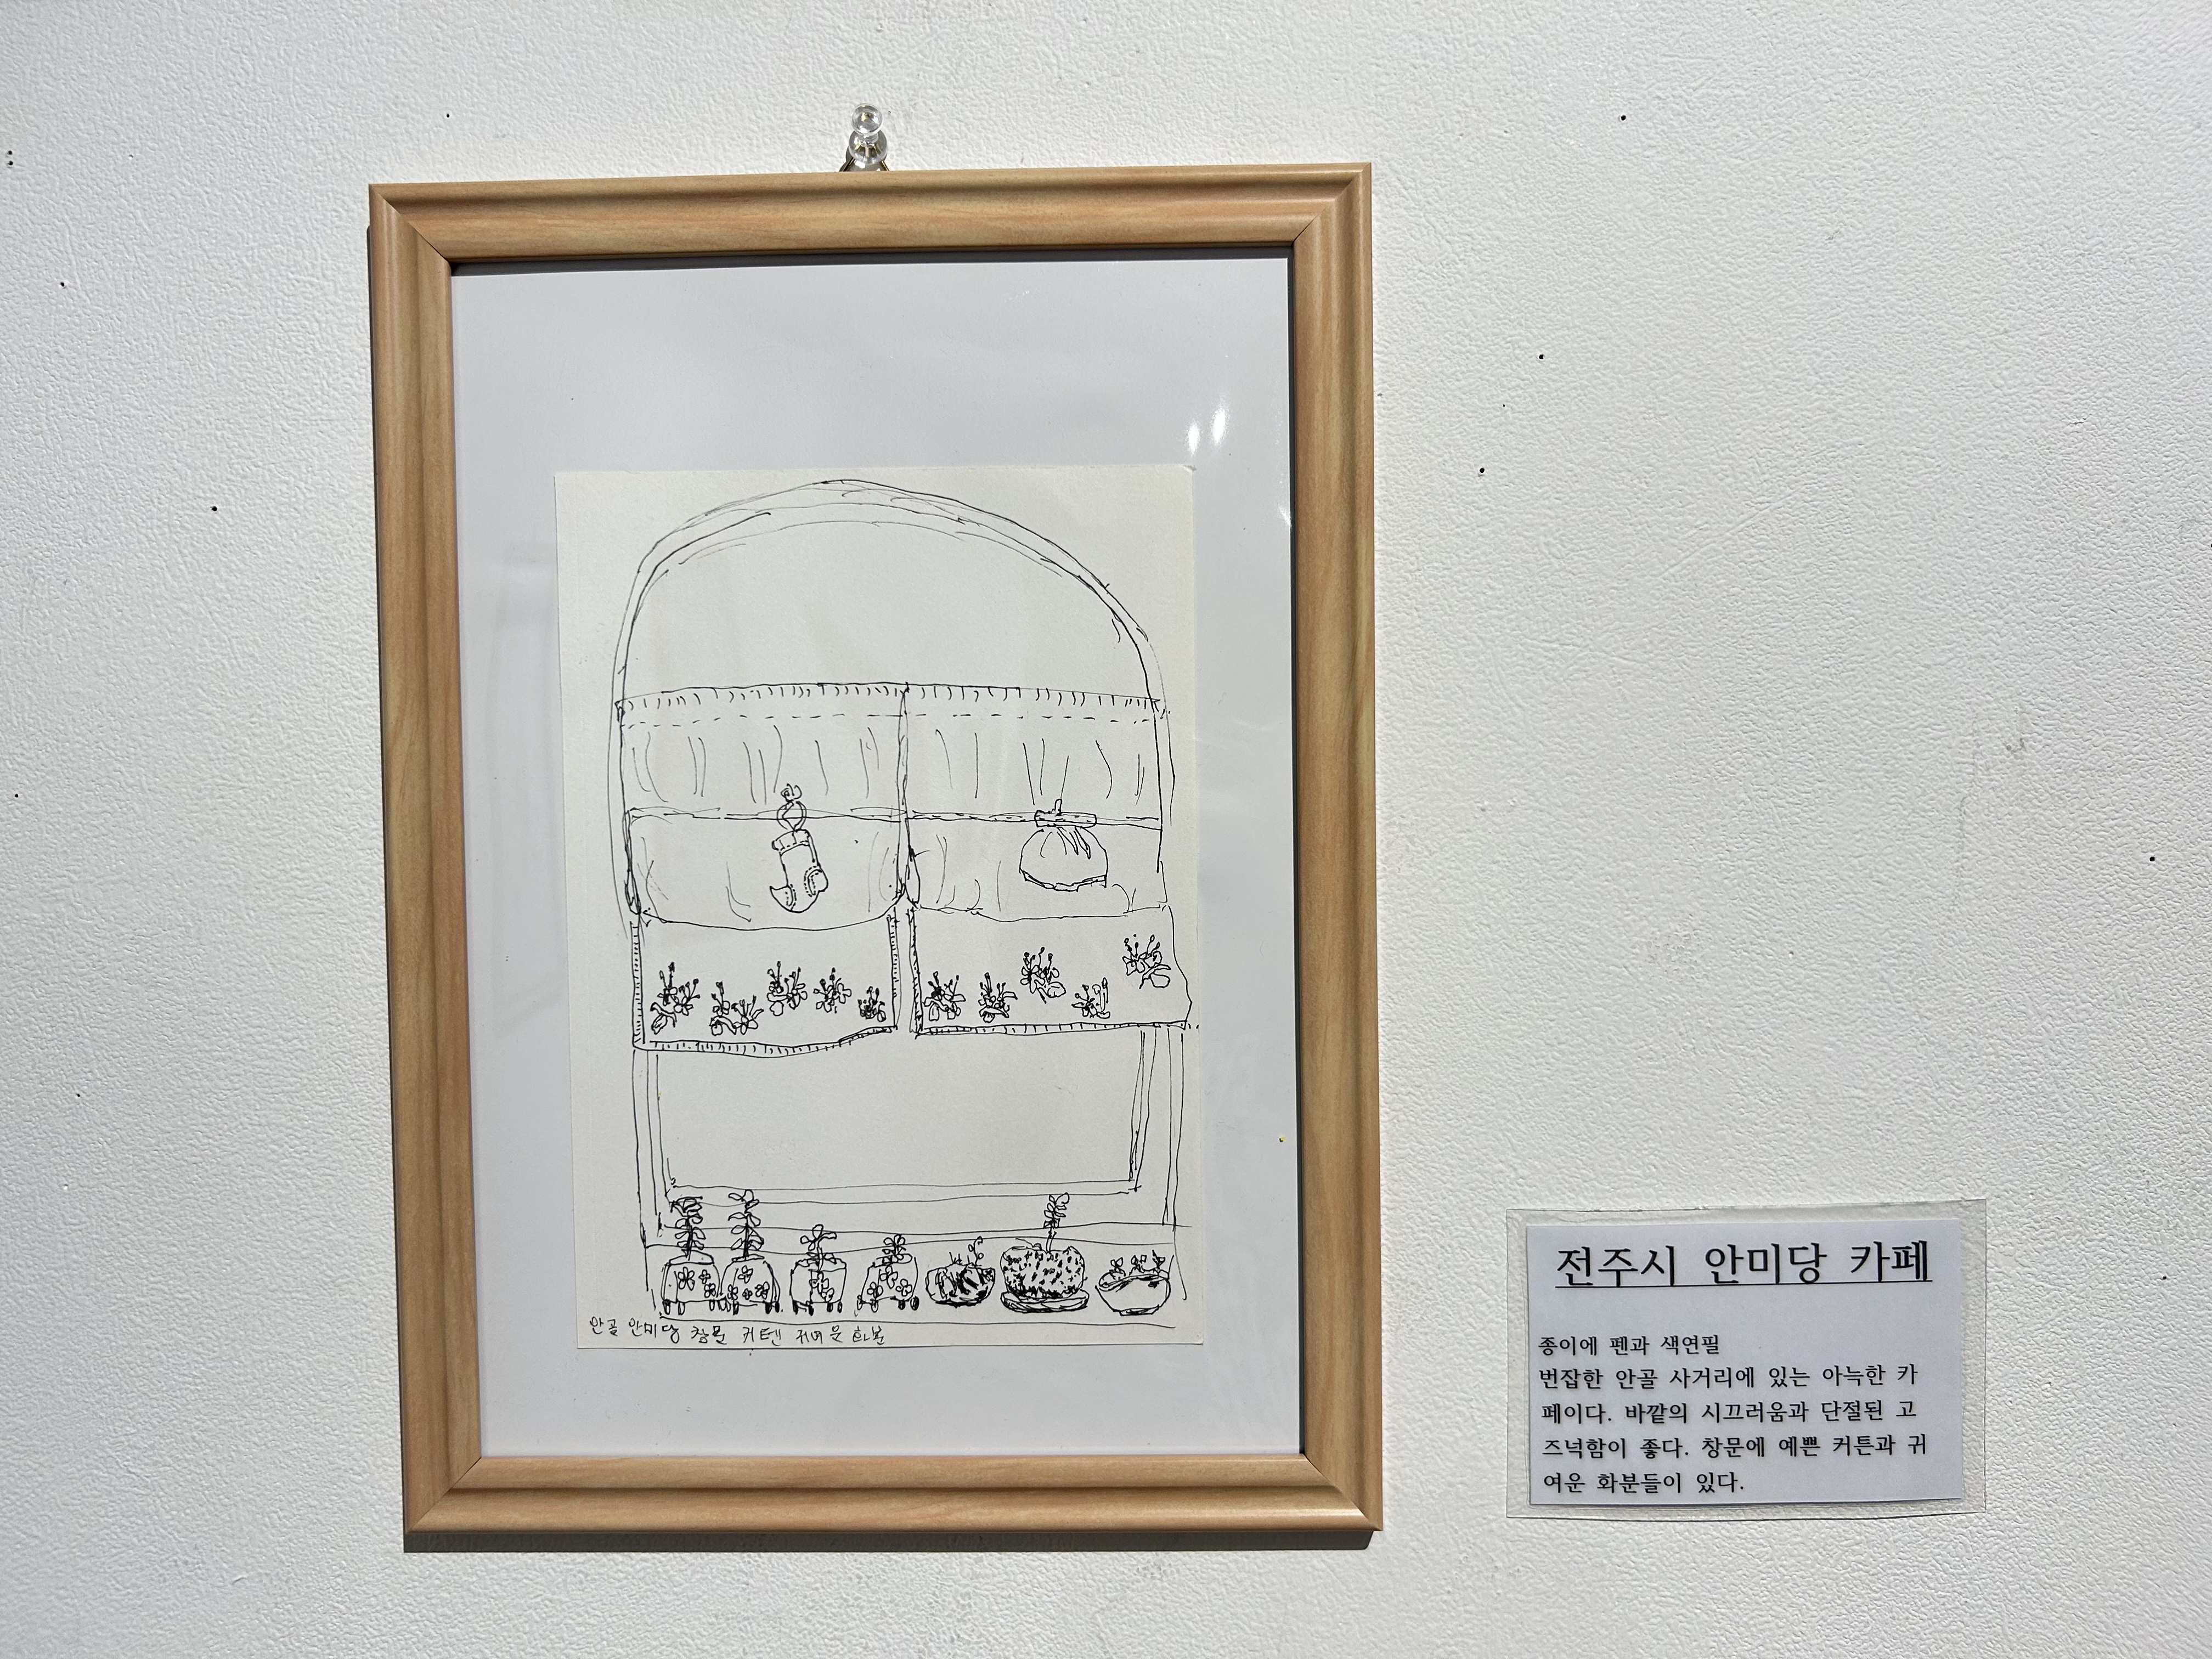 안골 안미당 창문 커텐 귀여운 화분
전주시 안미당 카페
종이에 펜과 색연필
번잡한 안골 사거리에 있는 아늑한 카
페이다. 바깥의 시끄러움과 단절된 고
즈넉함이 좋다. 창문에 예쁜 커튼과 귀
여운 화분들이 있다.